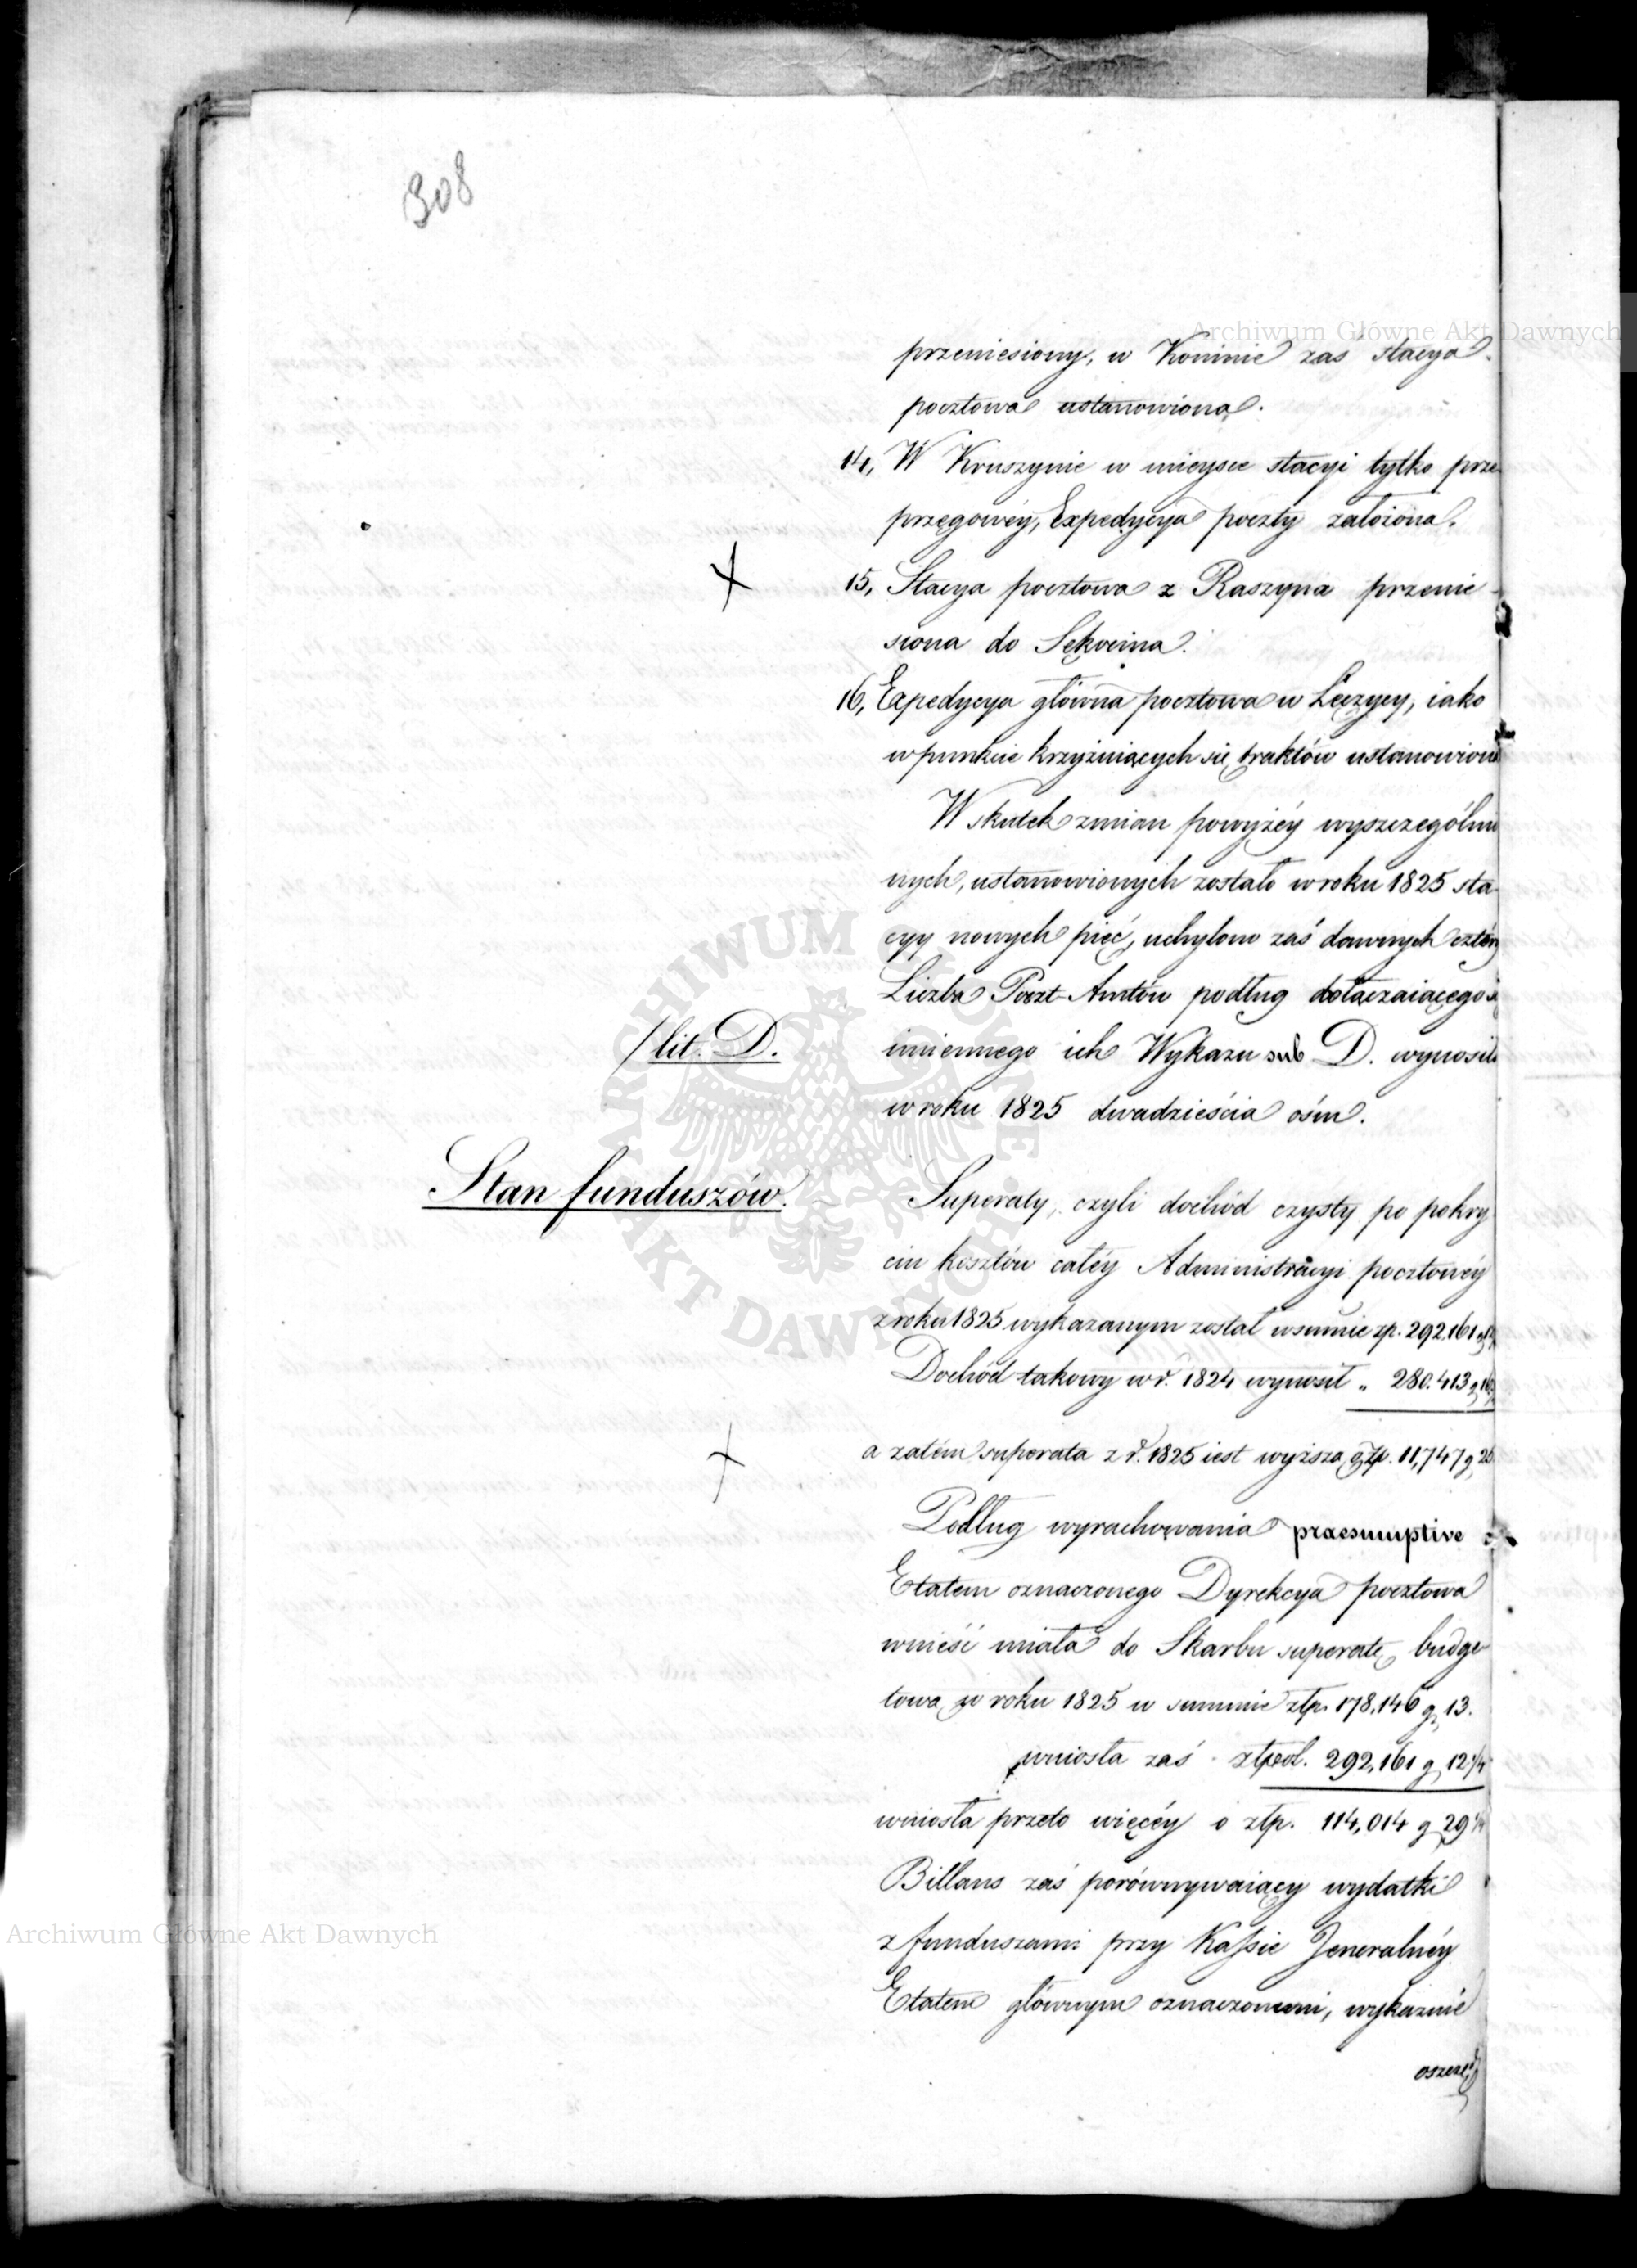 308
Archiwum Główne Akt Dawnych
przeniesiony, w Koninie zaś stacya
pocztowa ustanowiona.
14, W Kruszynie w mieysce stacyi tylko prze
przęgowéy, Expedycya poczty założona.
15, Stacya pocztowa z Raszyna przenie
siona do Sękocina.
16, Expedycya główna pocztowa w Łęczycy, iako
w punkcie krzyżuiących się traktów ustanowiona
W skutek zmian powyżéy wyszczególnio
nych, ustanowionych zostało w roku 1825 sta
cyy nowych pięć, uchylono zaś dawnych cztéry
Liczba Poczt-Amtów podług dołączaiącego się
/lit. D.
imiennego ich Wykazu sub D. wynosiła
w roku 1825 dwadzieścia ośm.
Stan funduszów.
Superaty, czyli dochód czysty po pokry
ciu kosztów całéy Administracyi pocztowéy
z roku 1825 wykazanym został w sumie zp. 292,161 g
Dochód takowy w r. 1824 wynosił „ 280.413 g
a zatém superata z r. 1825 iest wyższa o Zp. 11,747 g 25
Podług wyrachowania praesumptive
Etatem oznaczonego Dyrekcya pocztowa
wnieść miała do Skarbu superatę budge
tową w roku 1825 w summie złp. 178,146 g 13.
wniosła zaś złpol. 292,161 g 12 1/4
wniosła przeto więcéy o złp. 114,014 g 29 1/4
Billans zaś porównywaiący wydatki
z funduszami przy Kassie Jeneralnéy
Etatem głównym oznaczonemi, wykazuie
oszczę
ARCHIWUM GŁÓWNE AKT DAWNYCH
Archiwum Główne Akt Dawnych